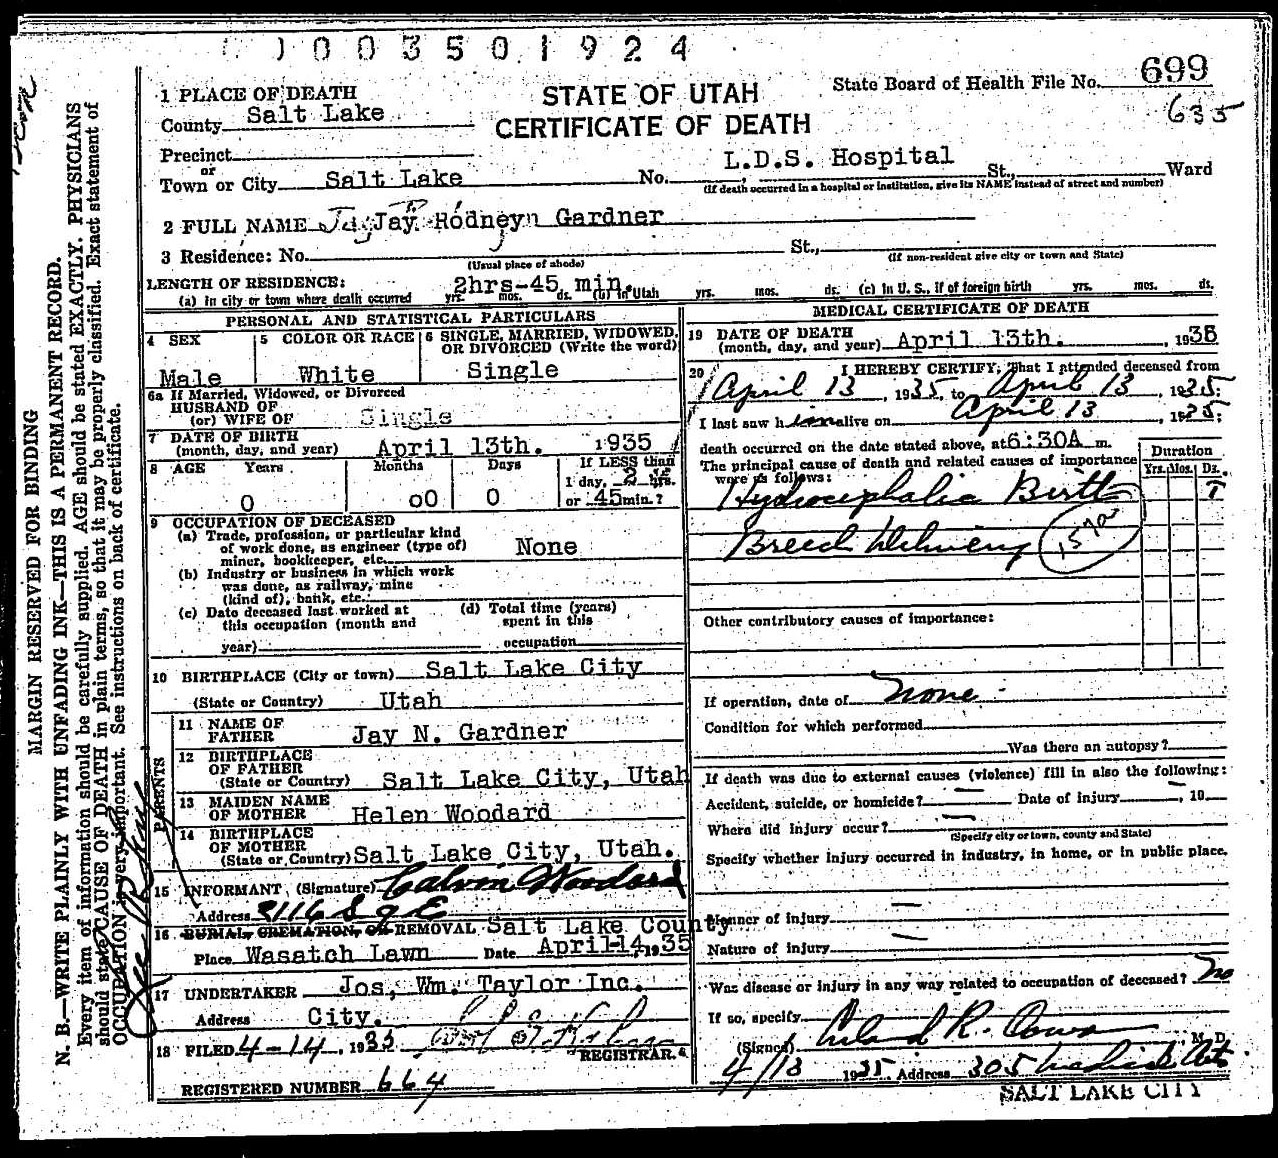 0 0 3 5 0 1 9 2 4
State Board of Health File No. 699
635
STATE OF UTAH
CERTIFICATE OF DEATH
1 PLACE OF DEATH
County Salt Lake
Precinct
or
Town or City Salt Lake No. L.D.S. Hospital St., Ward
(If death occurred in a hospital or institution, give its NAME instead of street and number)
2 FULL NAME Jay Jay Rodney Gardner
3 Residence: No. St.,
(Usual place of abode) (If non-resident give city or town and State)
LENGTH OF RESIDENCE: 2hrs-45 min.
(a) In city or town where death occurred yrs. mos. ds. (b) In Utah yrs. mos. ds. (c) In U. S., if of foreign birth yrs. mos. ds.
PERSONAL AND STATISTICAL PARTICULARS
4 SEX
Male
5 COLOR OR RACE
White
6 SINGLE, MARRIED, WIDOWED,
OR DIVORCED (Write the word)
Single
6a If Married, Widowed, or Divorced
HUSBAND OF
(or) WIFE OF Single
7 DATE OF BIRTH
(month, day, and year) April 13th. 1935
8 AGE Years Months Days If LESS than
1 day, 2 hrs.
0 00 0 or 45 min.?
9 OCCUPATION OF DECEASED
(a) Trade, profession, or particular kind
of work done, as engineer (type of)
miner, bookkeeper, etc. None
(b) Industry or business in which work
was done, as railway, mine
(kind of), bank, etc.
(c) Date deceased last worked at
this occupation (month and
year)
(d) Total time (years)
spent in this
occupation
10 BIRTHPLACE (City or town) Salt Lake City
(State or Country) Utah
PARENTS
11 NAME OF
FATHER Jay N. Gardner
12 BIRTHPLACE
OF FATHER
(State or Country) Salt Lake City, Utah
13 MAIDEN NAME
OF MOTHER Helen Woodard
14 BIRTHPLACE
OF MOTHER
(State or Country) Salt Lake City, Utah.
15 INFORMANT (Signature) Calvin Woodard
Address 3116 S 9 E
16 BURIAL, CREMATION, OR REMOVAL Salt Lake County
Place Wasatch Lawn Date April-14, 1935
17 UNDERTAKER Jos. Wm. Taylor Inc.
Address City.
18 FILED 4-14, 1935
REGISTRAR.
REGISTERED NUMBER 664
MEDICAL CERTIFICATE OF DEATH
19 DATE OF DEATH
(month, day, and year) April 13th., 1935
20 I HEREBY CERTIFY, That I attended deceased from
April 13, 1935, to April 13, 1935;
I last saw him alive on April 13, 1935;
death occurred on the date stated above, at 6:30A m.
The principal cause of death and related causes of importance
were as follows:
Duration
Yrs. Mos. Ds.
Hydrocephalic Birth 1
Breech Delivery
157a
Other contributory causes of importance:
If operation, date of none
Condition for which performed
Was there an autopsy?
If death was due to external causes (violence) fill in also the following:
Accident, suicide, or homicide? — Date of injury —, 19
Where did injury occur? —
(Specify city or town, county and State)
Specify whether injury occurred in industry, in home, or in public place.
Manner of injury —
Nature of injury —
Was disease or injury in any way related to occupation of deceased? No
If so, specify
(Signed) Leland R. Cowan M. D.
4/13 1935 Address 305 Medical Arts
SALT LAKE CITY
MARGIN RESERVED FOR BINDING
N. B.—WRITE PLAINLY WITH UNFADING INK—THIS IS A PERMANENT RECORD.
Every item of information should be carefully supplied. AGE should be stated EXACTLY. PHYSICIANS
should state CAUSE OF DEATH in plain terms, so that it may be properly classified. Exact statement of
OCCUPATION is very important. See instructions on back of certificate.